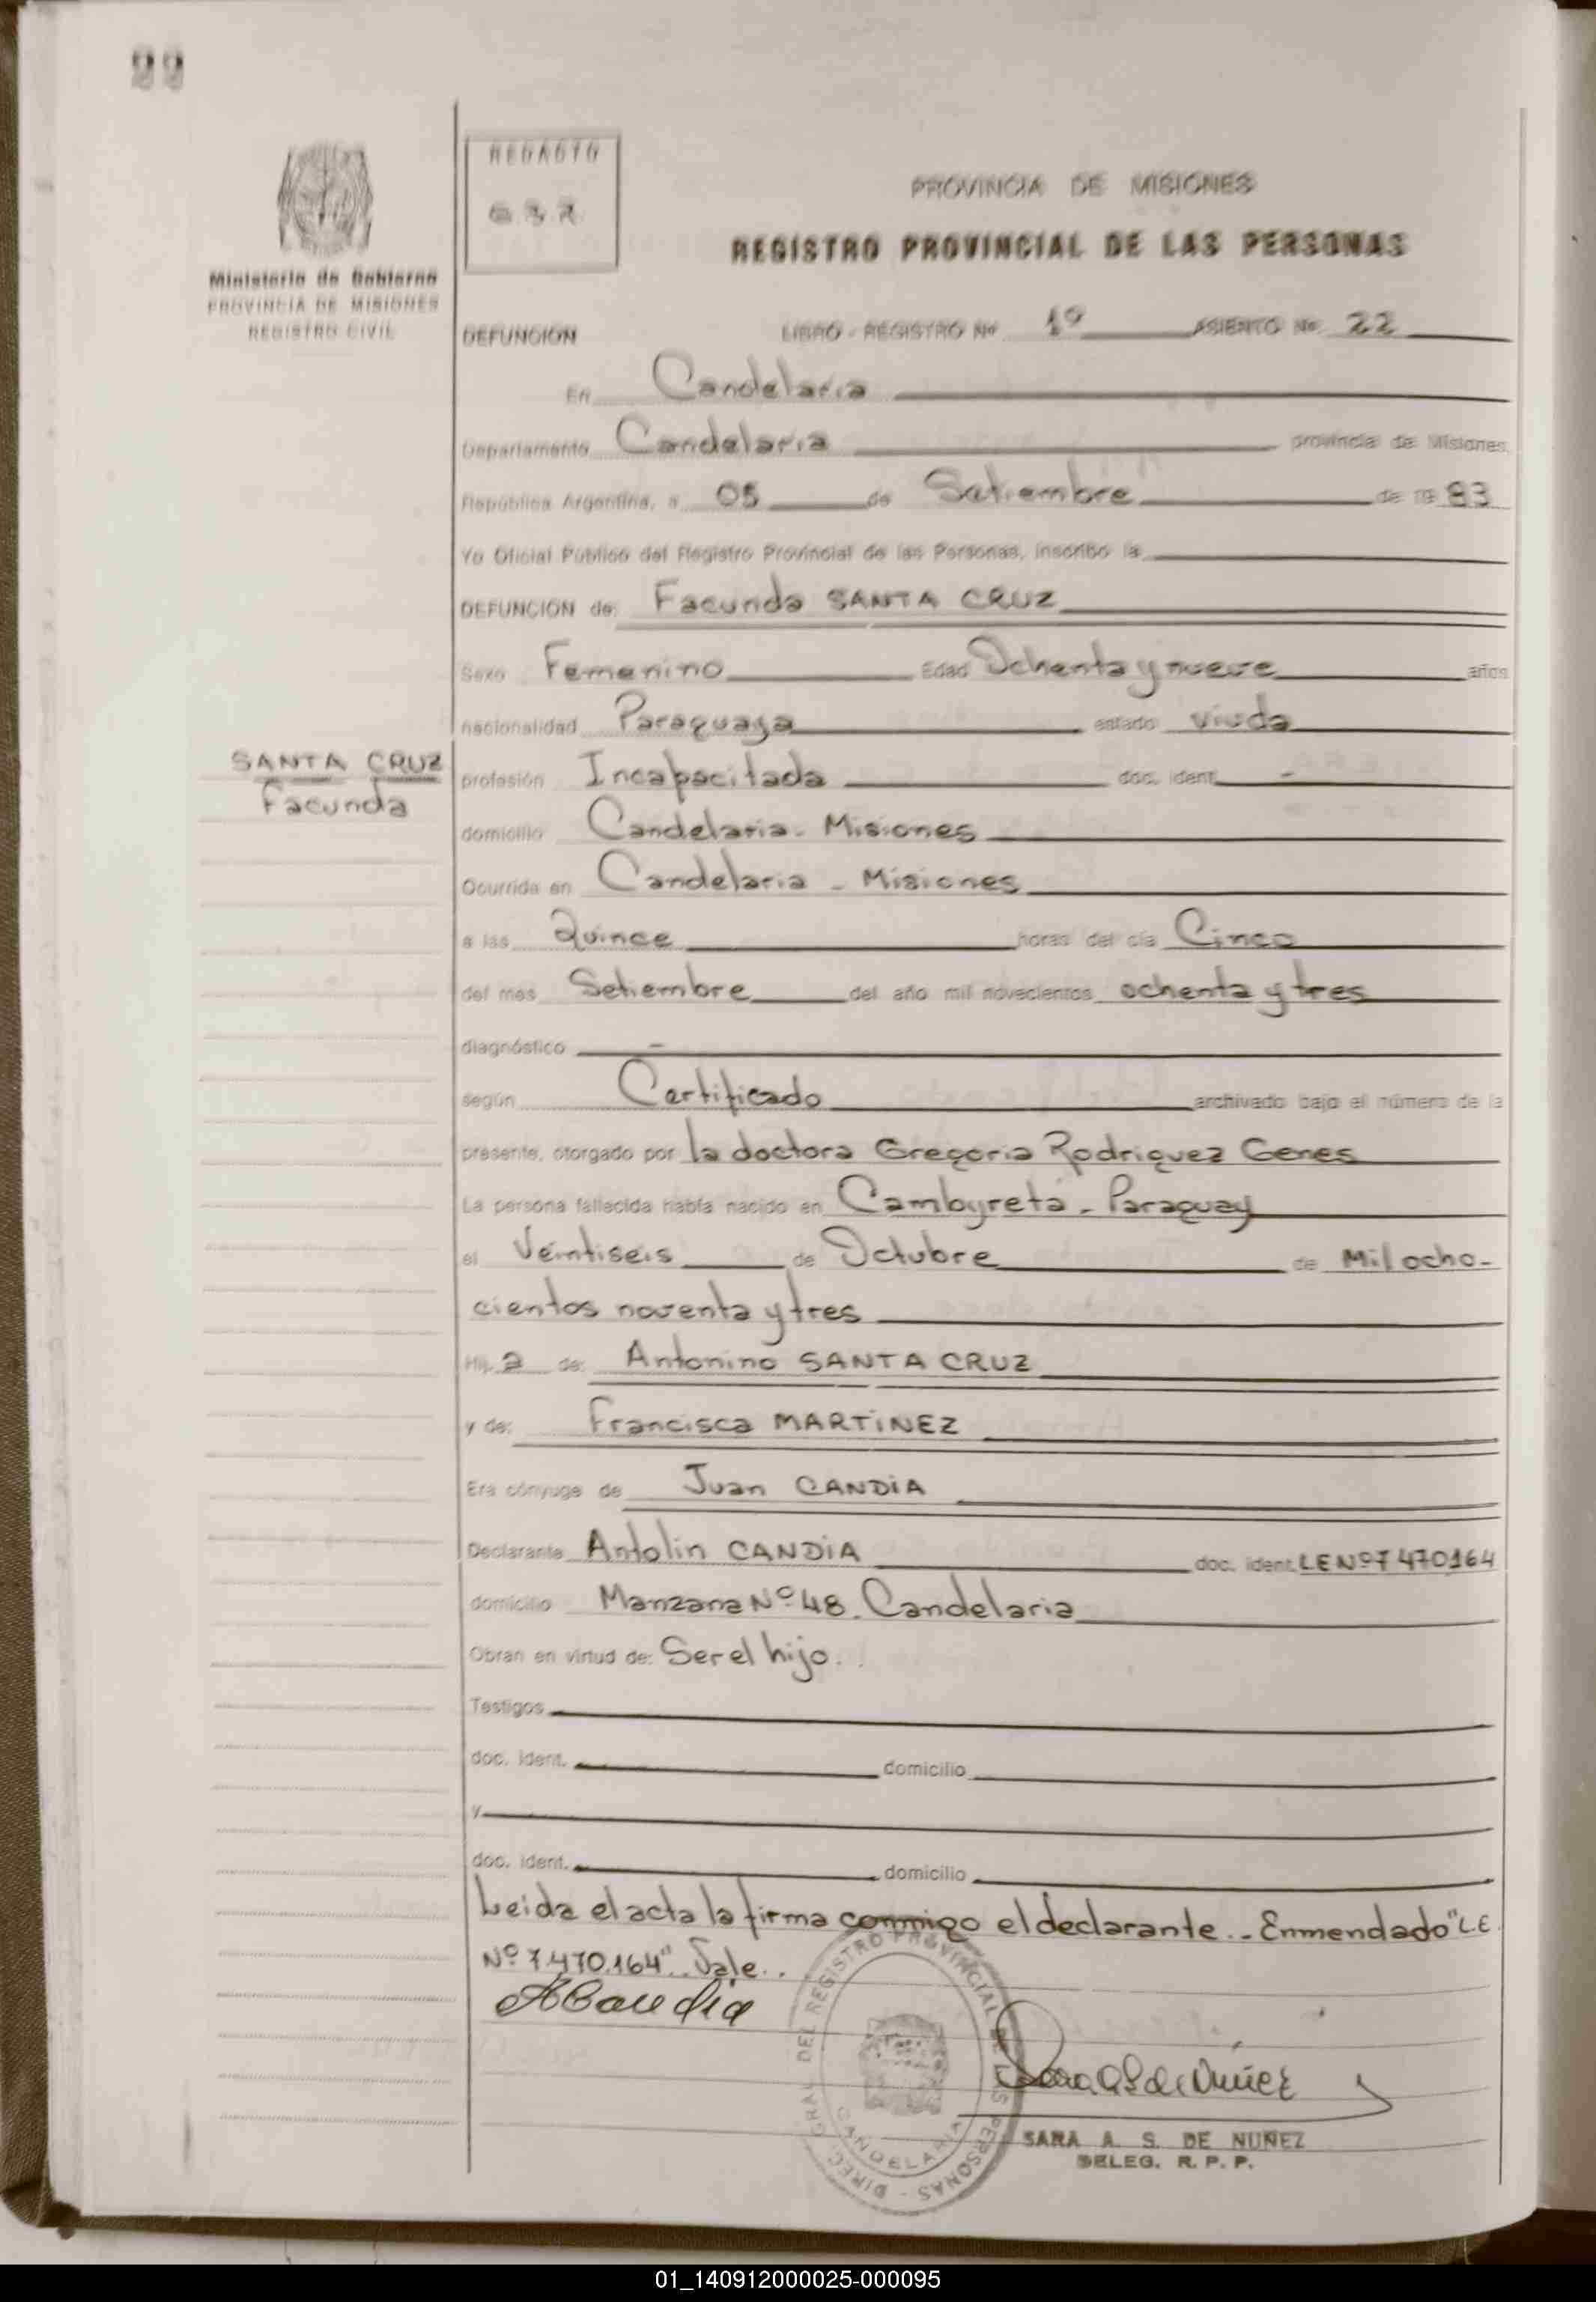 22
Ministerio de Gobierno
PROVINCIA DE MISIONES
REGISTRO CIVIL
REDACTO
PROVINCIA DE MISIONES
REGISTRO PROVINCIAL DE LAS PERSONAS
DEFUNCION LIBRO - REGISTRO No 1º ASIENTO No 22
En Candelaria
Departamento Candelaria provincia de Misiones
República Argentina, a 05 de Setiembre de 19 83
Yo Oficial Público del Registro Provincial de las Personas, inscribo la
DEFUNCION de: Facunda SANTA CRUZ
Sexo Femenino Edad Ochenta y nueve años
nacionalidad Paraguaya estado viuda
SANTA CRUZ
Facunda
profesión Incapacitada doc. ident. -
domicilio Candelaria - Misiones
Ocurrida en Candelaria - Misiones
a las Quince horas del día Cinco
del mes Setiembre del año mil novecientos ochenta y tres
diagnóstico -
según Certificado archivado bajo el número de la
presente, otorgado por la doctora Gregoria Rodriguez Genes
La persona fallecida había nacido en Cambyretá - Paraguay
el Veintiseis de Octubre de Mil ocho-
cientos noventa y tres
Hij a de: Antonino SANTA CRUZ
y de: Francisca MARTiNEZ
Era cónyuge de Juan CANDiA
Declarante Antolin CANDiA doc. ident. LE Nº 7 470164
domicilio Manzana Nº 48. Candelaria
Obran en virtud de: Ser el hijo..
Testigos
doc. ident. domicilio
y
doc. ident. domicilio
Leida el acta la firma conmigo el declarante.- Enmendado "L.E.
Nº 7.470.164".. Vale..
ACandia
DIREC. GRAL. DEL REGISTRO PROVINCIAL DE LAS PERSONAS -
CANDELARIA
Sara AS de Nuñez
SARA A. S. DE NUÑEZ
DELEG. R. P. P.
01_140912000025-000095